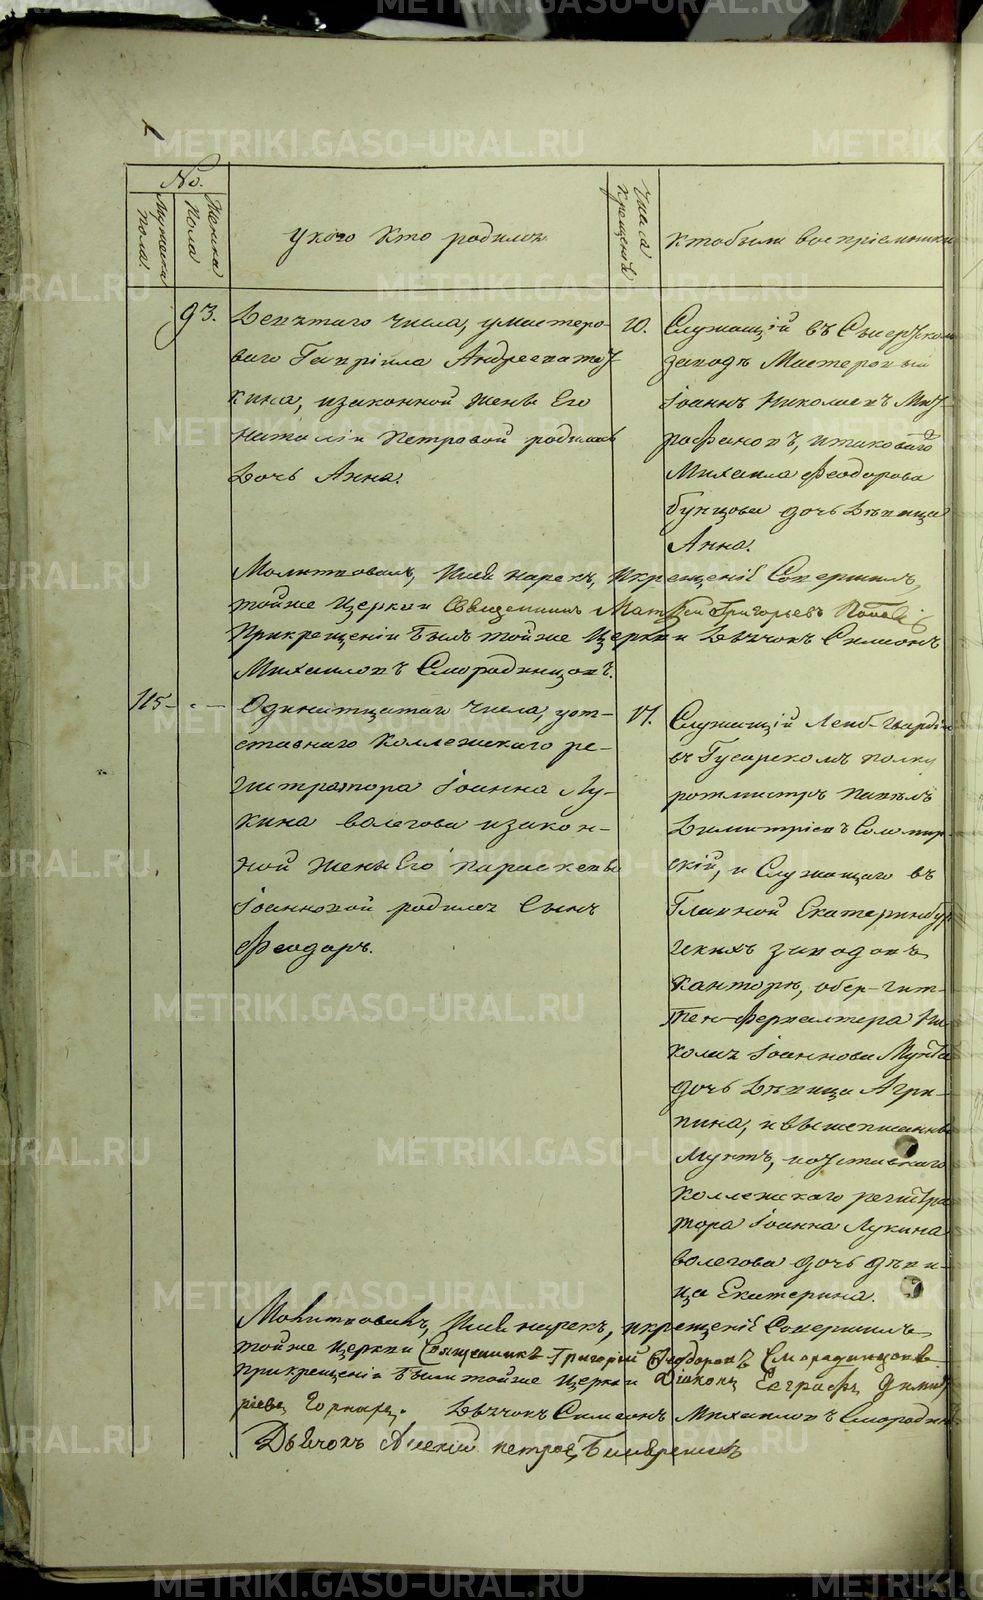 №.
Мужеска пола
Женска пола
У кого кто родился
Числа крещенія
Кто были воспріемники
93.
Девятаго числа, у мастеро-
ваго Гавріила Андреева
кина, и законной жены Его
Наталіи Петровой родилась
Дочь Анна.
10.
Служащій въ Сысертском
заводѣ Мастеровый
Іоаннъ Николаевъ Мит-
рофановъ, и таковаго
Михаила Феодорова
бунцова дочь Дѣвица
Анна.
Молитвовалъ, Имя нарекъ, и крещеніе Совершилъ
тойже Церкви Священникъ Матфей Григорьевъ Поповъ
При крещеніи былъ тойже Церкви Дьячокъ Симеонъ
Михаиловъ Смородинцовъ.
115
Одиннатцатаго числа, у от-
ставнаго Коллежскаго ре-
гистратора Іоанна Лу-
кина Волегова и закон-
ной жены Его Параскевы
Іоанновой родился Сынъ
Феодоръ.
17.
Служащій Лейб-гвардіи
въ Гусарскомъ полку
ротмистръ Павелъ
Димитріевъ Соломир-
скій, и Служащаго въ
Главной Екатеринбур
гскихъ заводовъ
Канторѣ, обер-гит-
тен-фервалтера Ни
колая Іоаннова Мунта
дочь Дѣвица Агри-
пина, и вышеписанный
Мунтъ, и отставнаго
Коллежскаго регистра
тора Іоанна Лукина
Волегова дочь дѣви-
ца Екатерина.
Молитвовалъ, Имя нарекъ, и крещеніе Совершилъ
тойже Церкви Священникъ Григорій Феодоровъ Смородинцовъ
При крещеніи были тойже Церкви Діаконъ Евграфъ Димит
ріевъ Дьячокъ Симеонъ Михаиловъ Смородин
Дьячокъ Алексій Петровъ
METRIKI.GASO-URAL.RU